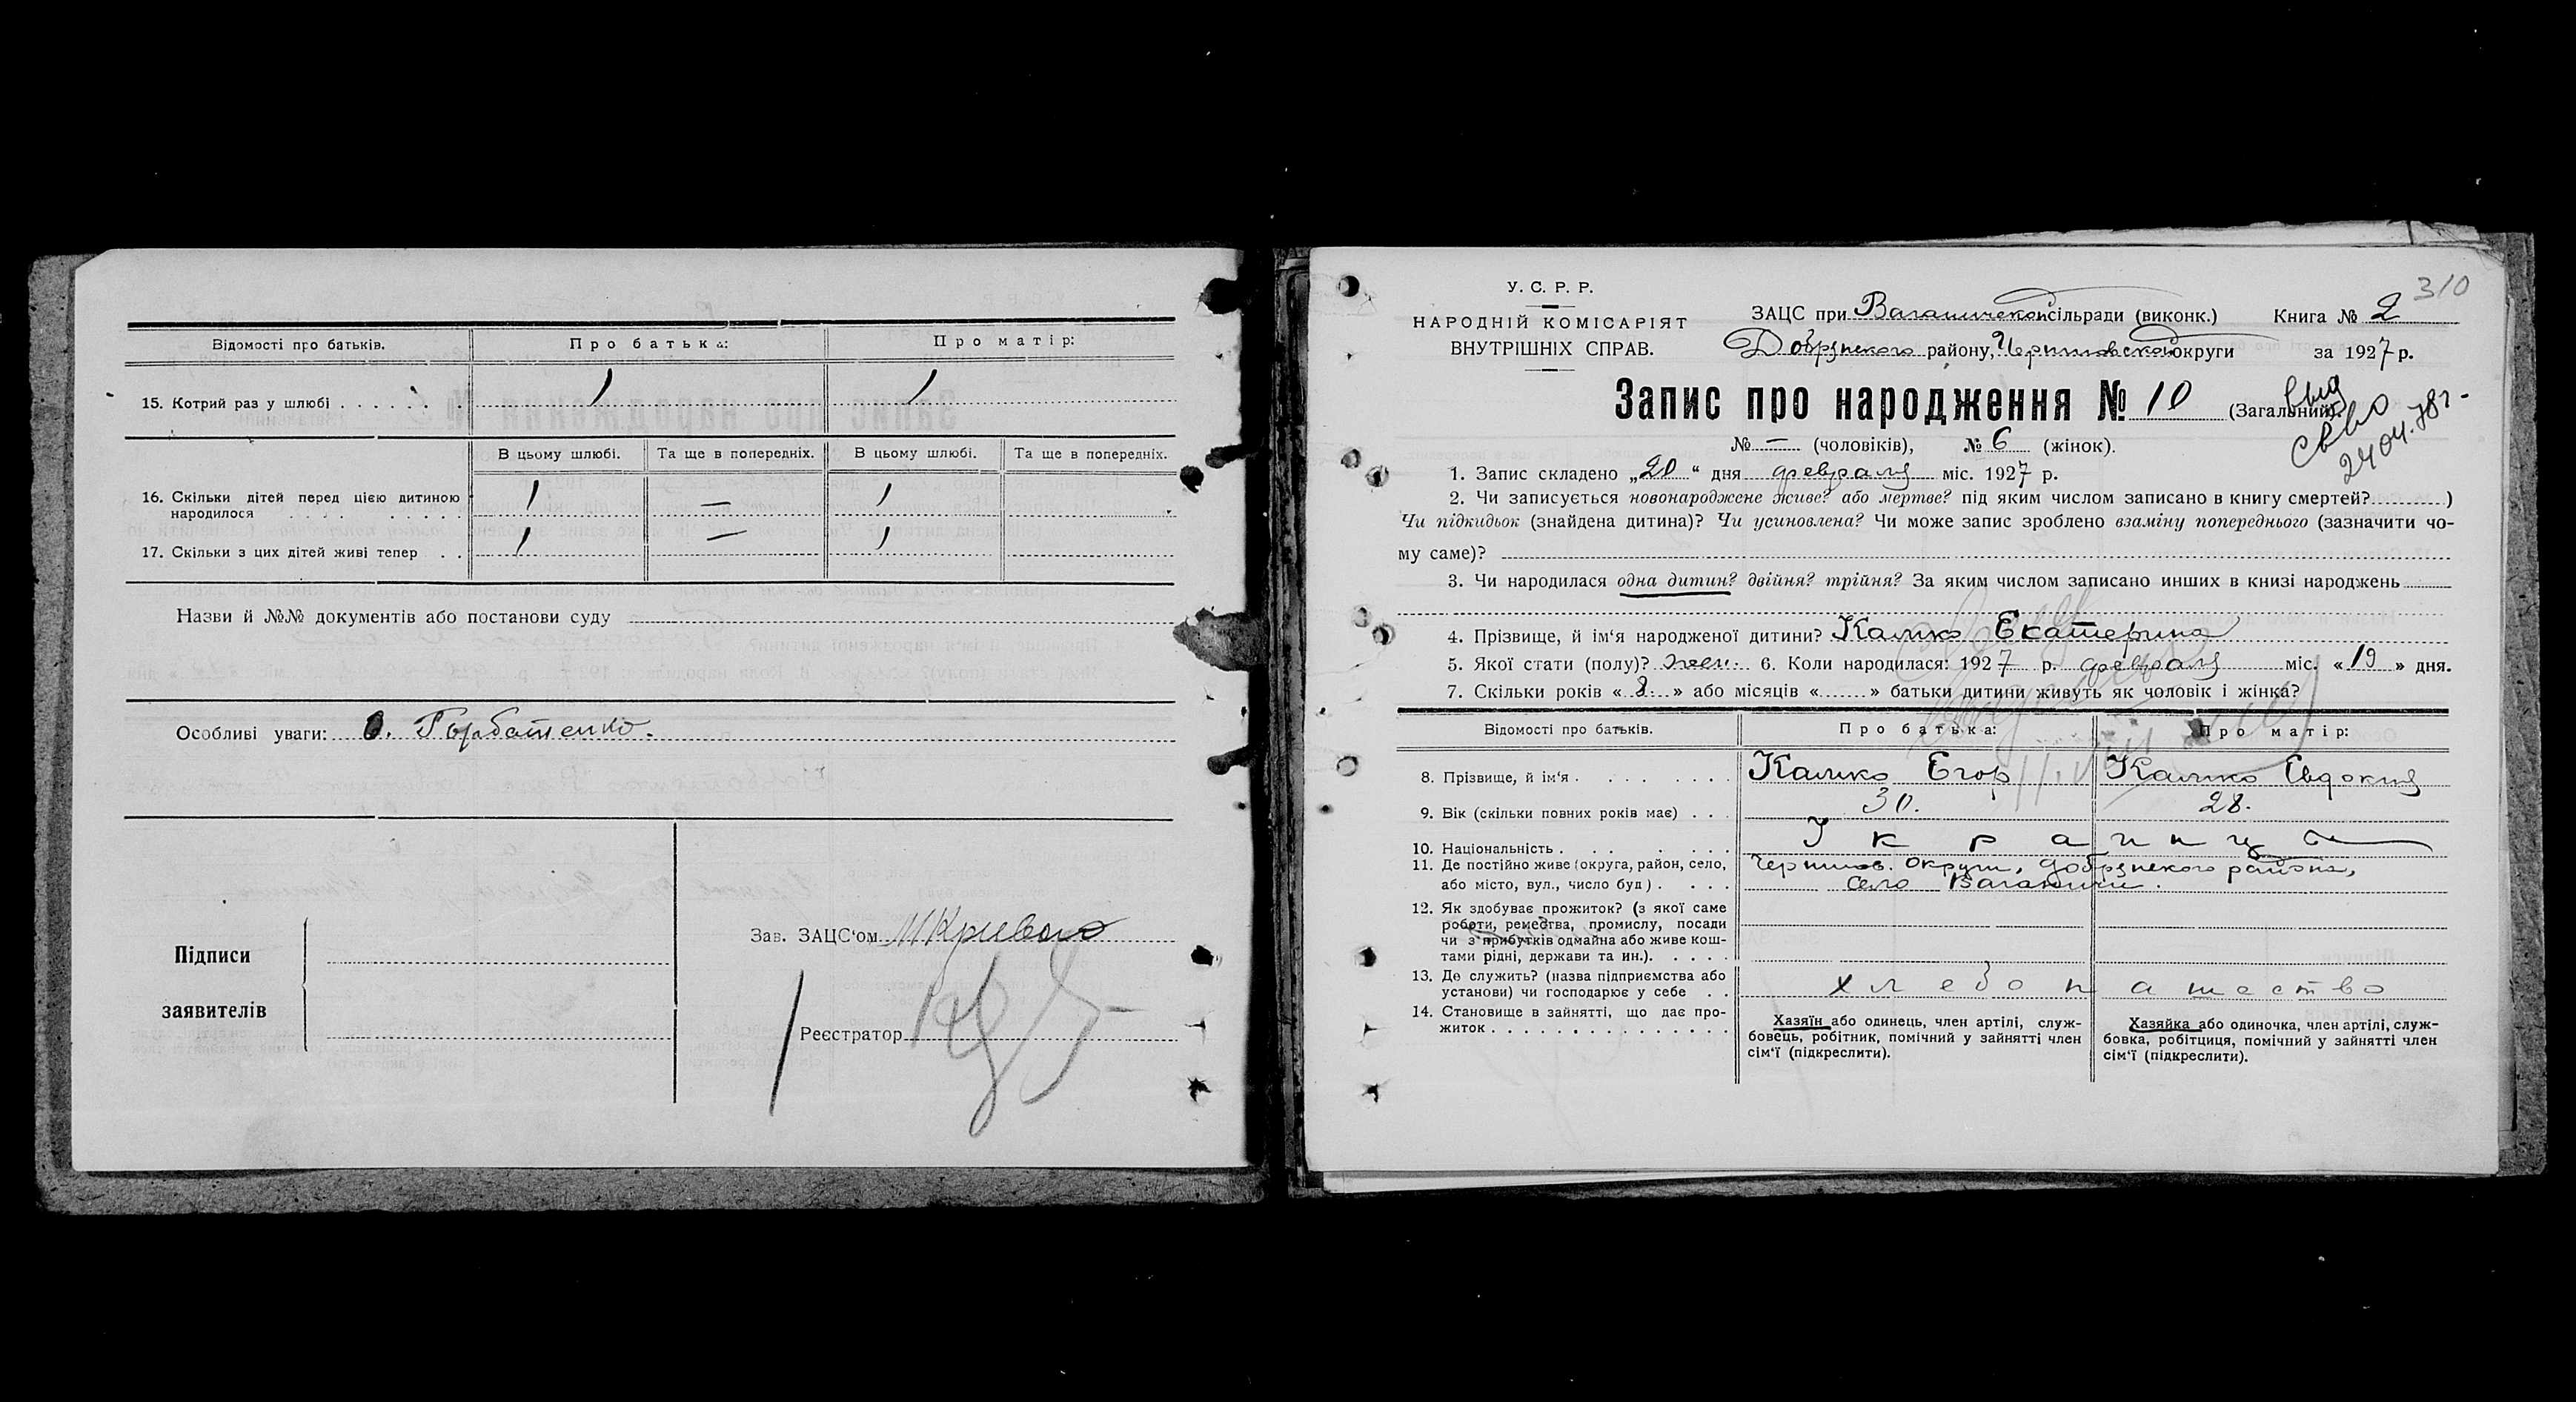 Відомості про батьків. Про батька: Про матір:
15. Котрий раз у шлюбі . . . . . . . 1 1
В цьому шлюбі. Та ще в попередніх. В цьому шлюбі. Та ще в попередніх.
16. Скільки дітей перед цією дитиною 1 — 1
народилося . . . . . . . . .
17. Скільки з цих дітей живі тепер . . 1 — 1
Назви й №№ документів або постанови суду
Особливі уваги: О. Горбатенко.
Підписи
заявителів
Зав. ЗАЦС'ом
Реєстратор
310
У. С. Р. Р.
НАРОДНІЙ КОМІСАРІЯТ
ВНУТРІШНІХ СПРАВ.
ЗАЦС при Ваганичской сільради (виконк.) Книга № 2
Добрянского району, Черниговской округи за 1927 р.
Запис про народження № 10 (Загальний).
выд
св-во
24 04. 78г-
№ — (чоловіків), № 6 (жінок).
1. Запис складено „20“ дня февраля міс. 1927 р.
2. Чи записується новонароджене живе? або мертве? під яким числом записано в книгу смертей? )
Чи підкидьок (знайдена дитина)? Чи усиновлена? Чи може запис зроблено взаміну попереднього (зазначити чо-
му саме)?
3. Чи народилася одна дитин? двійня? трійня? За яким числом записано инших в книзі народжень
4. Прізвище, й ім'я народженої дитини? Калико Екатерина
5. Якої стати (полу)? жен. 6. Коли народилася: 1927 р. февраля міс. «19» дня.
7. Скільки років «8.» або місяців « » батьки дитини живуть як чоловік і жінка?
Відомості про батьків. Про батька: Про матір:
8. Прізвище, й ім'я . . . . . . . Калико Егор Калико Евдокия
9. Вік (скільки повних років має) . . . 30. 28.
10. Національність . . . . . . Украинцы
11. Де постійно живе (округа, район, село, Чернигов. Округи, Добрянского района,
або місто, вул., число буд.) . . . . село Ваганичи.
12. Як здобуває прожиток? (з якої саме
роботи, ремества, промислу, посади
чи з прибутків одмайна або живе кош-
тами рідні, держави та ин.). . . . .
13. Де служить? (назва підприємства або
установи) чи господарює у себе . . хлебопашество
14. Становище в зайнятті, що дає про-
житок . . . . . . . . . . . . . . .
Хазяїн або одинець, член артілі, служ-
бовець, робітник, помічний у зайнятті член
сім'ї (підкреслити).
Хазяйка або одиночка, член артілі, служ-
бовка, робітциця, помічний у зайнятті член
сім'ї (підкреслити).